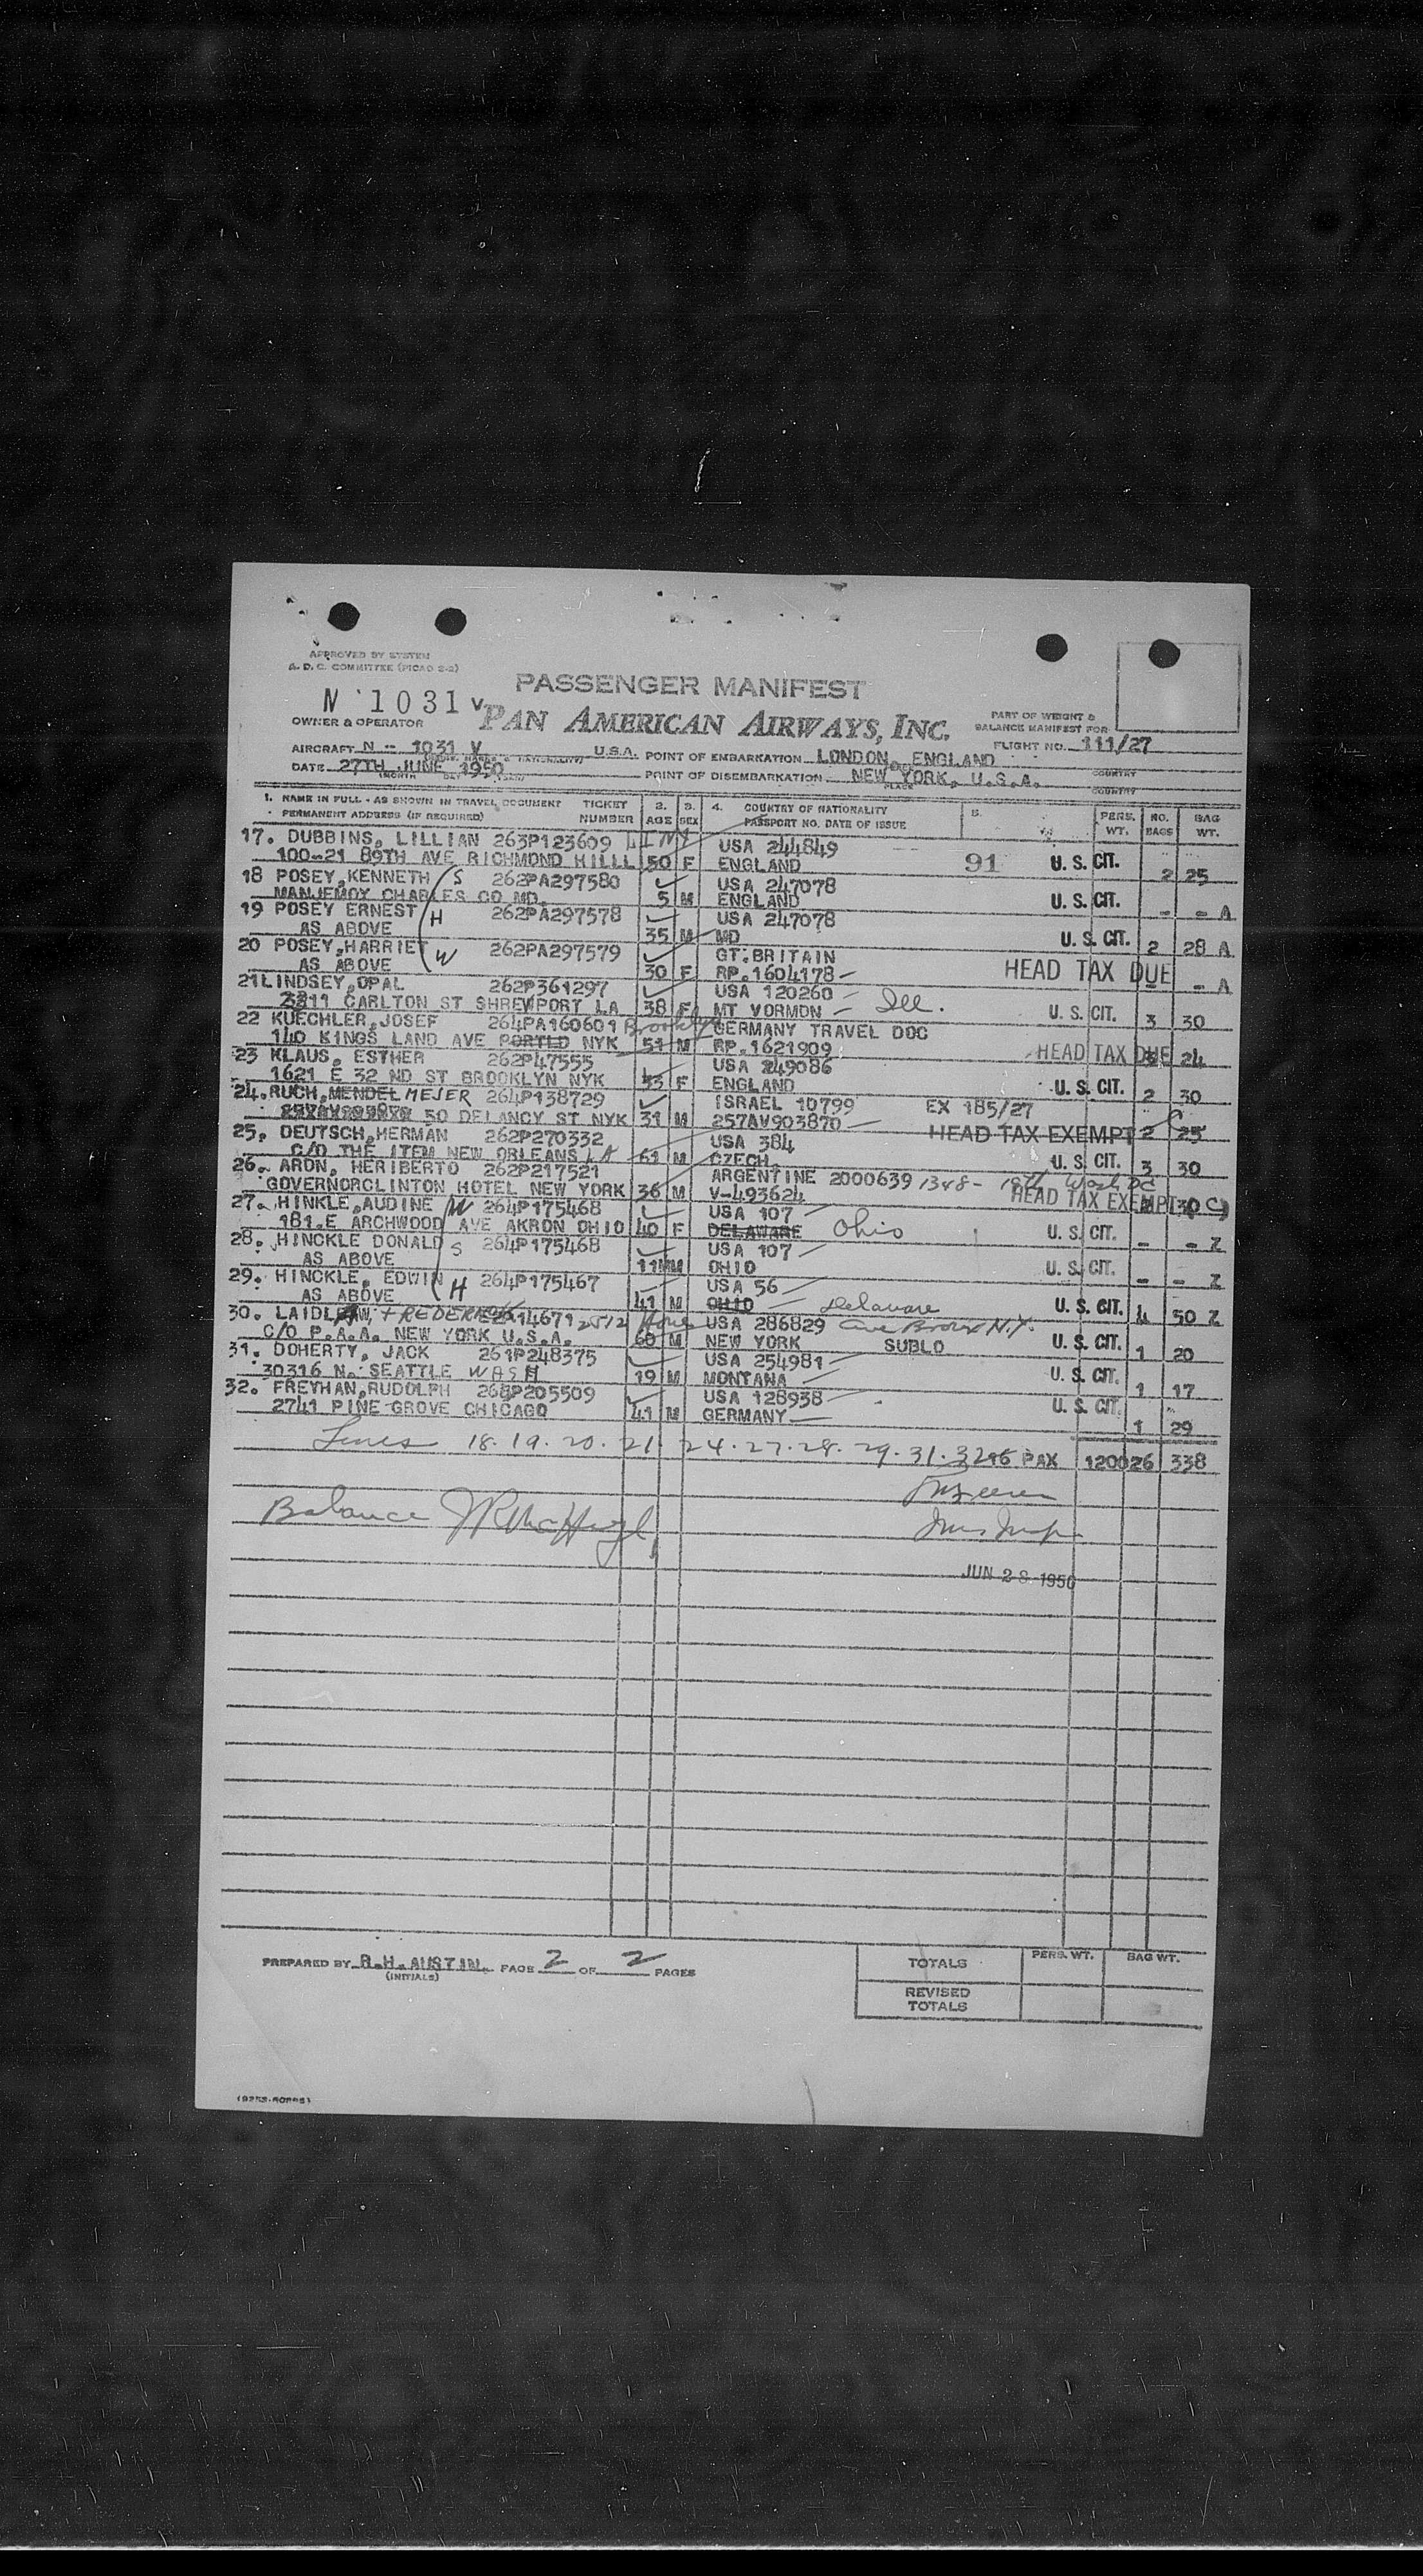 APPROVED BY SYSTEM
A. D. C. COMMITTEE (PICAO 2-2)
PASSENGER MANIFEST
N 1031 V
OWNER & OPERATOR
PAN AMERICAN AIRWAYS, INC.
PART OF WEIGHT &
BALANCE MANIFEST FOR
FLIGHT NO. 111/27
AIRCRAFT N - 1031 V U.S.A. POINT OF EMBARKATION LONDON, ENGLAND
DATE 27TH JUNE 1950 POINT OF DISEMBARKATION NEW YORK, U.S.A.
PLACE COUNTRY
1. NAME IN FULL - AS SHOWN IN TRAVEL DOCUMENT TICKET 2. 3. 4. COUNTRY OF NATIONALITY 5. PERS. NO. BAG
PERMANENT ADDRESS (IF REQUIRED) NUMBER AGE SEX PASSPORT NO. DATE OF ISSUE WT. BAGS WT.
17. DUBBINS, LILLIAN 263P123609 USA 244849
100-21 89TH AVE RICHMOND HILLL 50 F ENGLAND 91 U. S. CIT. 2 25
18 POSEY, KENNETH S 262PA297580 USA 247078
MANJEMOY CHARLES CO MD. 5 M ENGLAND U. S. CIT. - - A
19 POSEY ERNEST H 262PA297578 USA 247078
AS ABOVE 35 M MD U. S. CIT. 2 28 A
20 POSEY, HARRIET W 262PA297579 GT. BRITAIN
AS ABOVE 30 F RP. 1604178 - HEAD TAX DUE - A
21 LINDSEY, OPAL 262P361297 USA 120260
CARLTON ST SHREVPORT LA 38 F MT VORMON - Ill. U. S. CIT. 3 30
22 KUECHLER, JOSEF 264PA160601 Brooklyn GERMANY TRAVEL DOC
140 KINGS LAND AVE PORTLD NYK 51 M RP. 1621909 HEAD TAX DUE 24
23 KLAUS, ESTHER 262P47555 USA 249086
1621 E 32 ND ST BROOKLYN NYK F ENGLAND U. S. CIT. 2 30
24. RUCH, MENDEL MEJER 264P138729 ISRAEL 10799 EX 185/27
50 DELANCY ST NYK 31 M 257AV903870 HEAD TAX EXEMPT 2 25
25. DEUTSCH, HERMAN 262P270332 USA 384
C/O THE ITEM NEW ORLEANS LA 61 M CZECH U. S. CIT. 3 30
26. ARON, HERIBERTO 262P217521 ARGENTINE 2000639 1348 - 19th Wash DC
GOVERNORCLINTON HOTEL NEW YORK 36 M V-493624 HEAD TAX EXEMPT
27. HINKLE, AUDINE W 264P175468 USA 107
181.E ARCHWOOD AVE AKRON OHIO 40 F DELAWARE Ohio U. S. CIT. - - Z
28. HINCKLE DONALD S 264P175468 USA 107
AS ABOVE 11 M OHIO U. S. CIT. - - Z
29. HINCKLE, EDWIN H 264P175467 USA 56
AS ABOVE 41 M OHIO Delaware U. S. CIT. 4 50 Z
30. LAIDLAW, FREDERICK USA 286829 Ave Bronx N.Y.
C/O P.A.A. NEW YORK U.S.A. 60 M NEW YORK SUBLO U. S. CIT. 1 20
31. DOHERTY, JACK 261P248375 USA 254981
30316 N. SEATTLE WASH 19 M MONTANA U. S. CIT. 1 17
32. FREYHAN, RUDOLPH 268P205509 USA 128938
2741 PINE GROVE CHICAGO 41 M GERMANY U. S. CIT. 1 29
Lines 18. 19. 20. 21. 24. 27. 28. 29. 31. 32 PAX 338
Balance
JUN 28 1950
PREPARED BY R.H. AUSTIN. PAGE 2 OF 2 PAGES
(INITIALS)
TOTALS PERS. WT. BAG WT.
REVISED
TOTALS